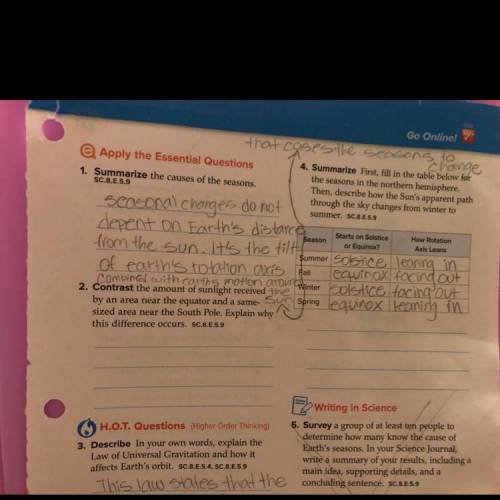 Go Online!
that coses the seasons to
change
Apply the Essential Questions
1. Summarize the causes of the seasons.
SC.8.E.5.9
seasonal charges do not
depent on Earth's distance
from the sun. It's the tilt
of earth's rotation axis
combined with earths motion aroun
the
sun
2. Contrast the amount of sunlight received
by an area near the equator and a same-
sized area near the South Pole. Explain why
this difference occurs. SC.8.E.5.9
H.O.T. Questions (Higher Order Thinking)
3. Describe In your own words, explain the
Law of Universal Gravitation and how it
affects Earth's orbit. SC.8.E.5.4, SC.8.E.5.9
This law states that the
4. Summarize First, fill in the table below for
the seasons in the northern hemisphere.
Then, describe how the Sun's apparent path
through the sky changes from winter to
summer. SC.8.E.5.9
Season Starts on Solstice or Equinox? How Rotation Axis Leans
Summer solstice leaning in
Fall equinox facing out
Winter solstice facing out
Spring equinox leaning in
Writing in Science
5. Survey a group of at least ten people to
determine how many know the cause of
Earth's seasons. In your Science Journal,
write a summary of your results, including a
main idea, supporting details, and a
concluding sentence. SC.8.E.5.9